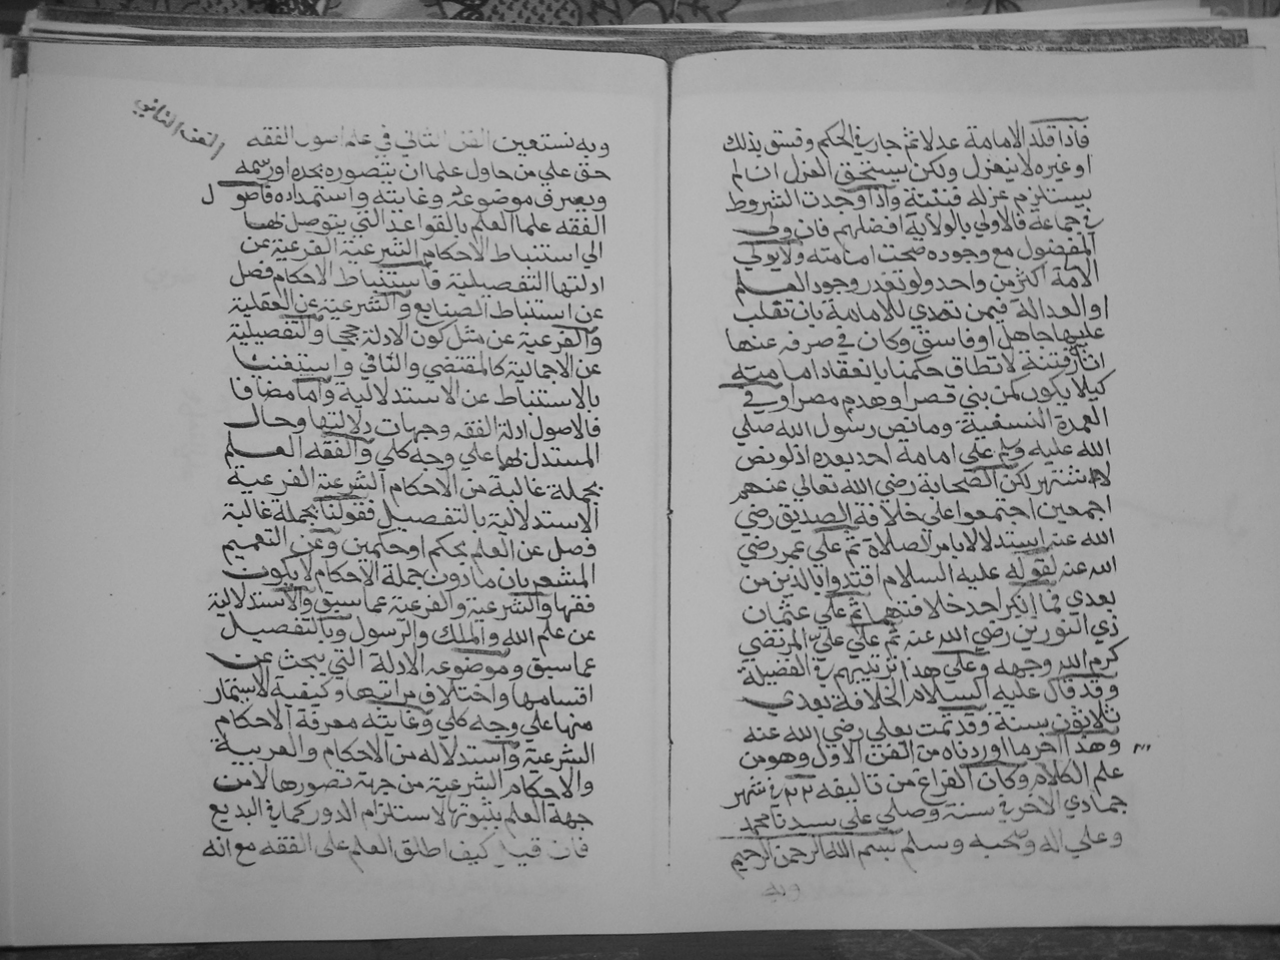 فاذا قلد الامامة عدلا ثم جار في الحكم وفسق بذلك
او غيره لا ينعزل ولكن يستحق العزل ان لم
يستلزم عزله فتنة واذا وجدت الشروط
في جماعة فالاولي بالولاية افضلهم فان ولي
المفضول مع وجوده صحت امامته ولا يولي
الامة اكثر من واحد ولو تعذر وجود العلم
او العدالة فيمن تصدي للامامة بان تغلب
عليها جاهل او فاسق وكان في صرفه عنها
اثارة فتنة لا تطاق حكمنا بانعقاد امامته
كيلا يكون كمن بني قصرا وهدم مصرا وفي
العمدة النسفية وما نص رسول الله صلي
الله عليه وسلم علي امامة احد بعده اذ لو نص
لاشتهر لكن الصحابة رضي الله تعالي عنهم
اجمعين اجتمعوا علي خلافة الصديق رضي
الله عنه استدلالا بامر الصلاة ثم علي عمر رضي
الله عنه لقوله عليه السلام اقتدوا بالذين من
بعدي فما انكر احد خلافتهما ثم علي عثمان
ذي النورين رضي الله عنه ثم علي علي المرتضي
كرم الله وجهه وعلي هذا ترتيبهم في الفضيلة
وقد قال عليه السلام الخلافة بعدي
ثلاثون سنة وقد تمت بعلي رضي الله عنه
وهذا اخر ما اوردناه من الفن الاول وهو من
علم الكلام وكان الفراغ من تاليفه ٢٢ في شهر
جمادي الاخر في سنة وصلي علي سيدنا محمد
وعلي اله وصحبه وسلم بسم الله الرحمن الرحيم
وبه
الفن الثاني
وبه نستعين الفن الثاني في علم اصول الفقه
حق علي من حاول علما ان يتصوره بحده او رسمه
ويعرف موضوعه وغايته واستمداده فاصول
الفقه علما العلم بالقواعد التي يتوصل بها
الي استنباط الاحكام الشرعية الفرعية عن
ادلتها التفصيلية فاستنباط الاحكام فصل
عن استنباط الصنايع والشرعية عن العقلية
والفرعية عن مثل كون الادلة حججا والتفصيلية
عن الاجمالية كالمقتضي والنافي واستغني
بالاستنباط عن الاستدلالية واما مضافا
فالاصول ادلة الفقه وجهات دلالتها وحال
المستدل بها علي وجه كلي والفقه العلم
بجملة غالبة من الاحكام الشرعية الفرعية
الاستدلالية بالتفصيل فقولنا بجملة غالبة
فصل عن العلم بحكم او حكمين وعن التعميم
المشعر بان ما دون جملة الاحكام لا يكون
فقها والشرعية والفرعية عما سبق والاستدلالية
عن علم الله والملك والرسول وبالتفصيل
عما سبق وموضوعه الادلة التي يبحث عن
اقسامها واختلاف مراتبها وكيفية الاستثمار
منها علي وجه كلي وغايته معرفة الاحكام
الشرعية واستدلاله من الاحكام والعربية
والاحكام الشرعية من جهة تصورها لا من
جهة العلم بثبوتها لاستلزام الدور كما في البديع
فان قيل كيف اطلق العلم على الفقه مع انه